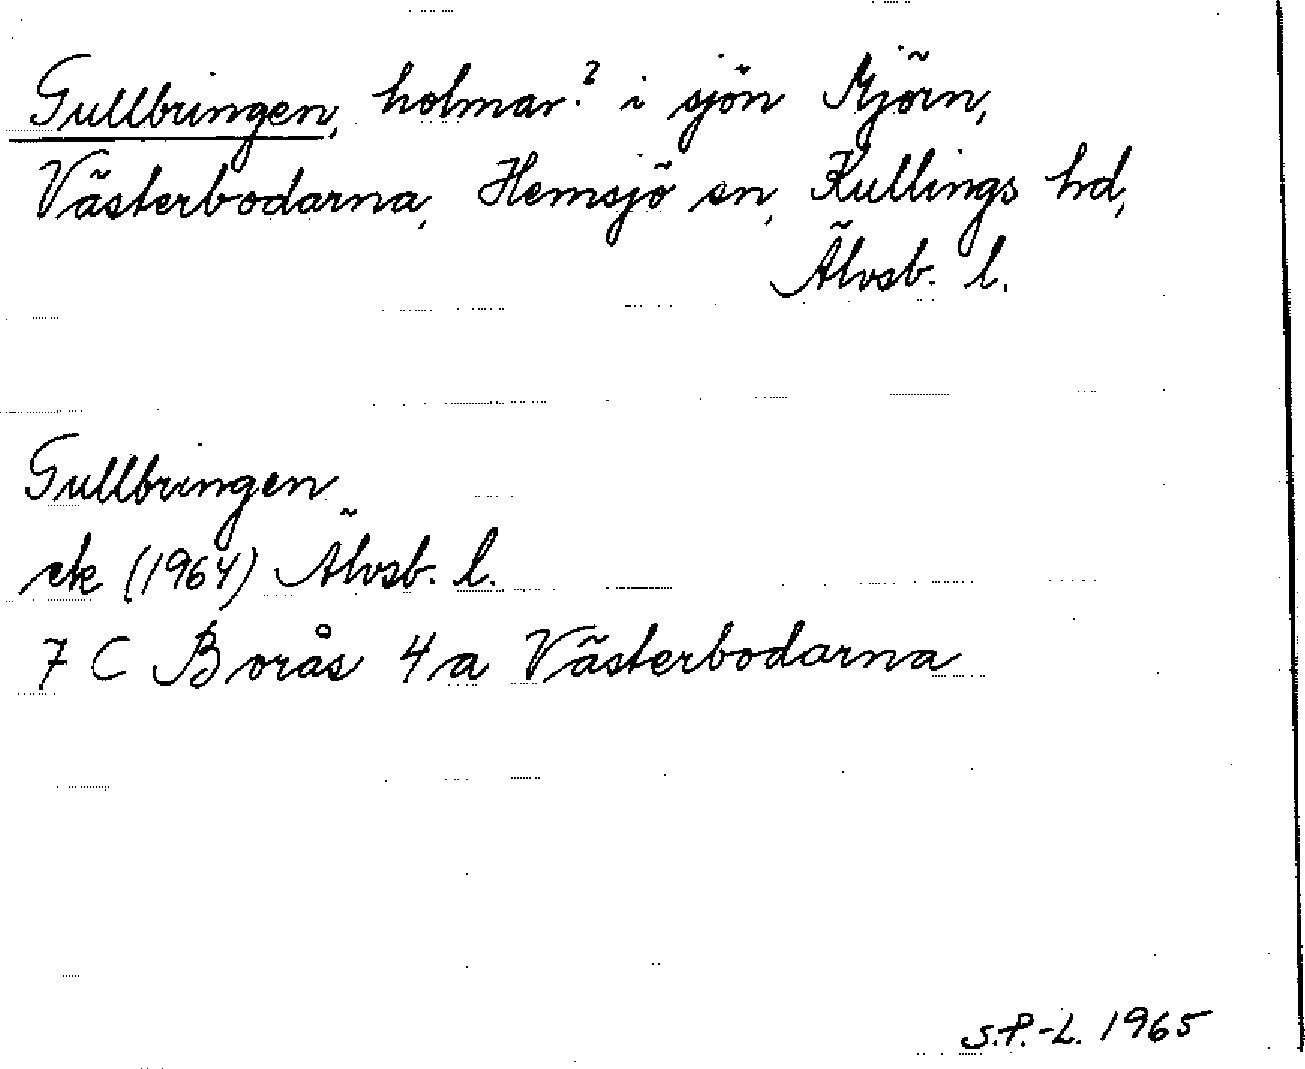 Gullbringen, holmar? i sjön Mjörn,
Västerbodarna, Hemsjö sn, Kullings hd,
Älvsb. l.
Gullbringen
ek (1964) Älvsb. l.
7 C Borås 4a Västerbodarna
S.P.-L. 1965